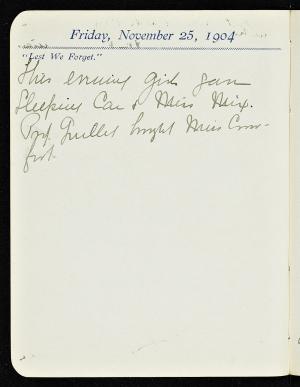 Friday, November 25, 1904
"Lest We Forget."
This evening girls gave
Sleeping Car & Miss Mix.
Prof brought Miss